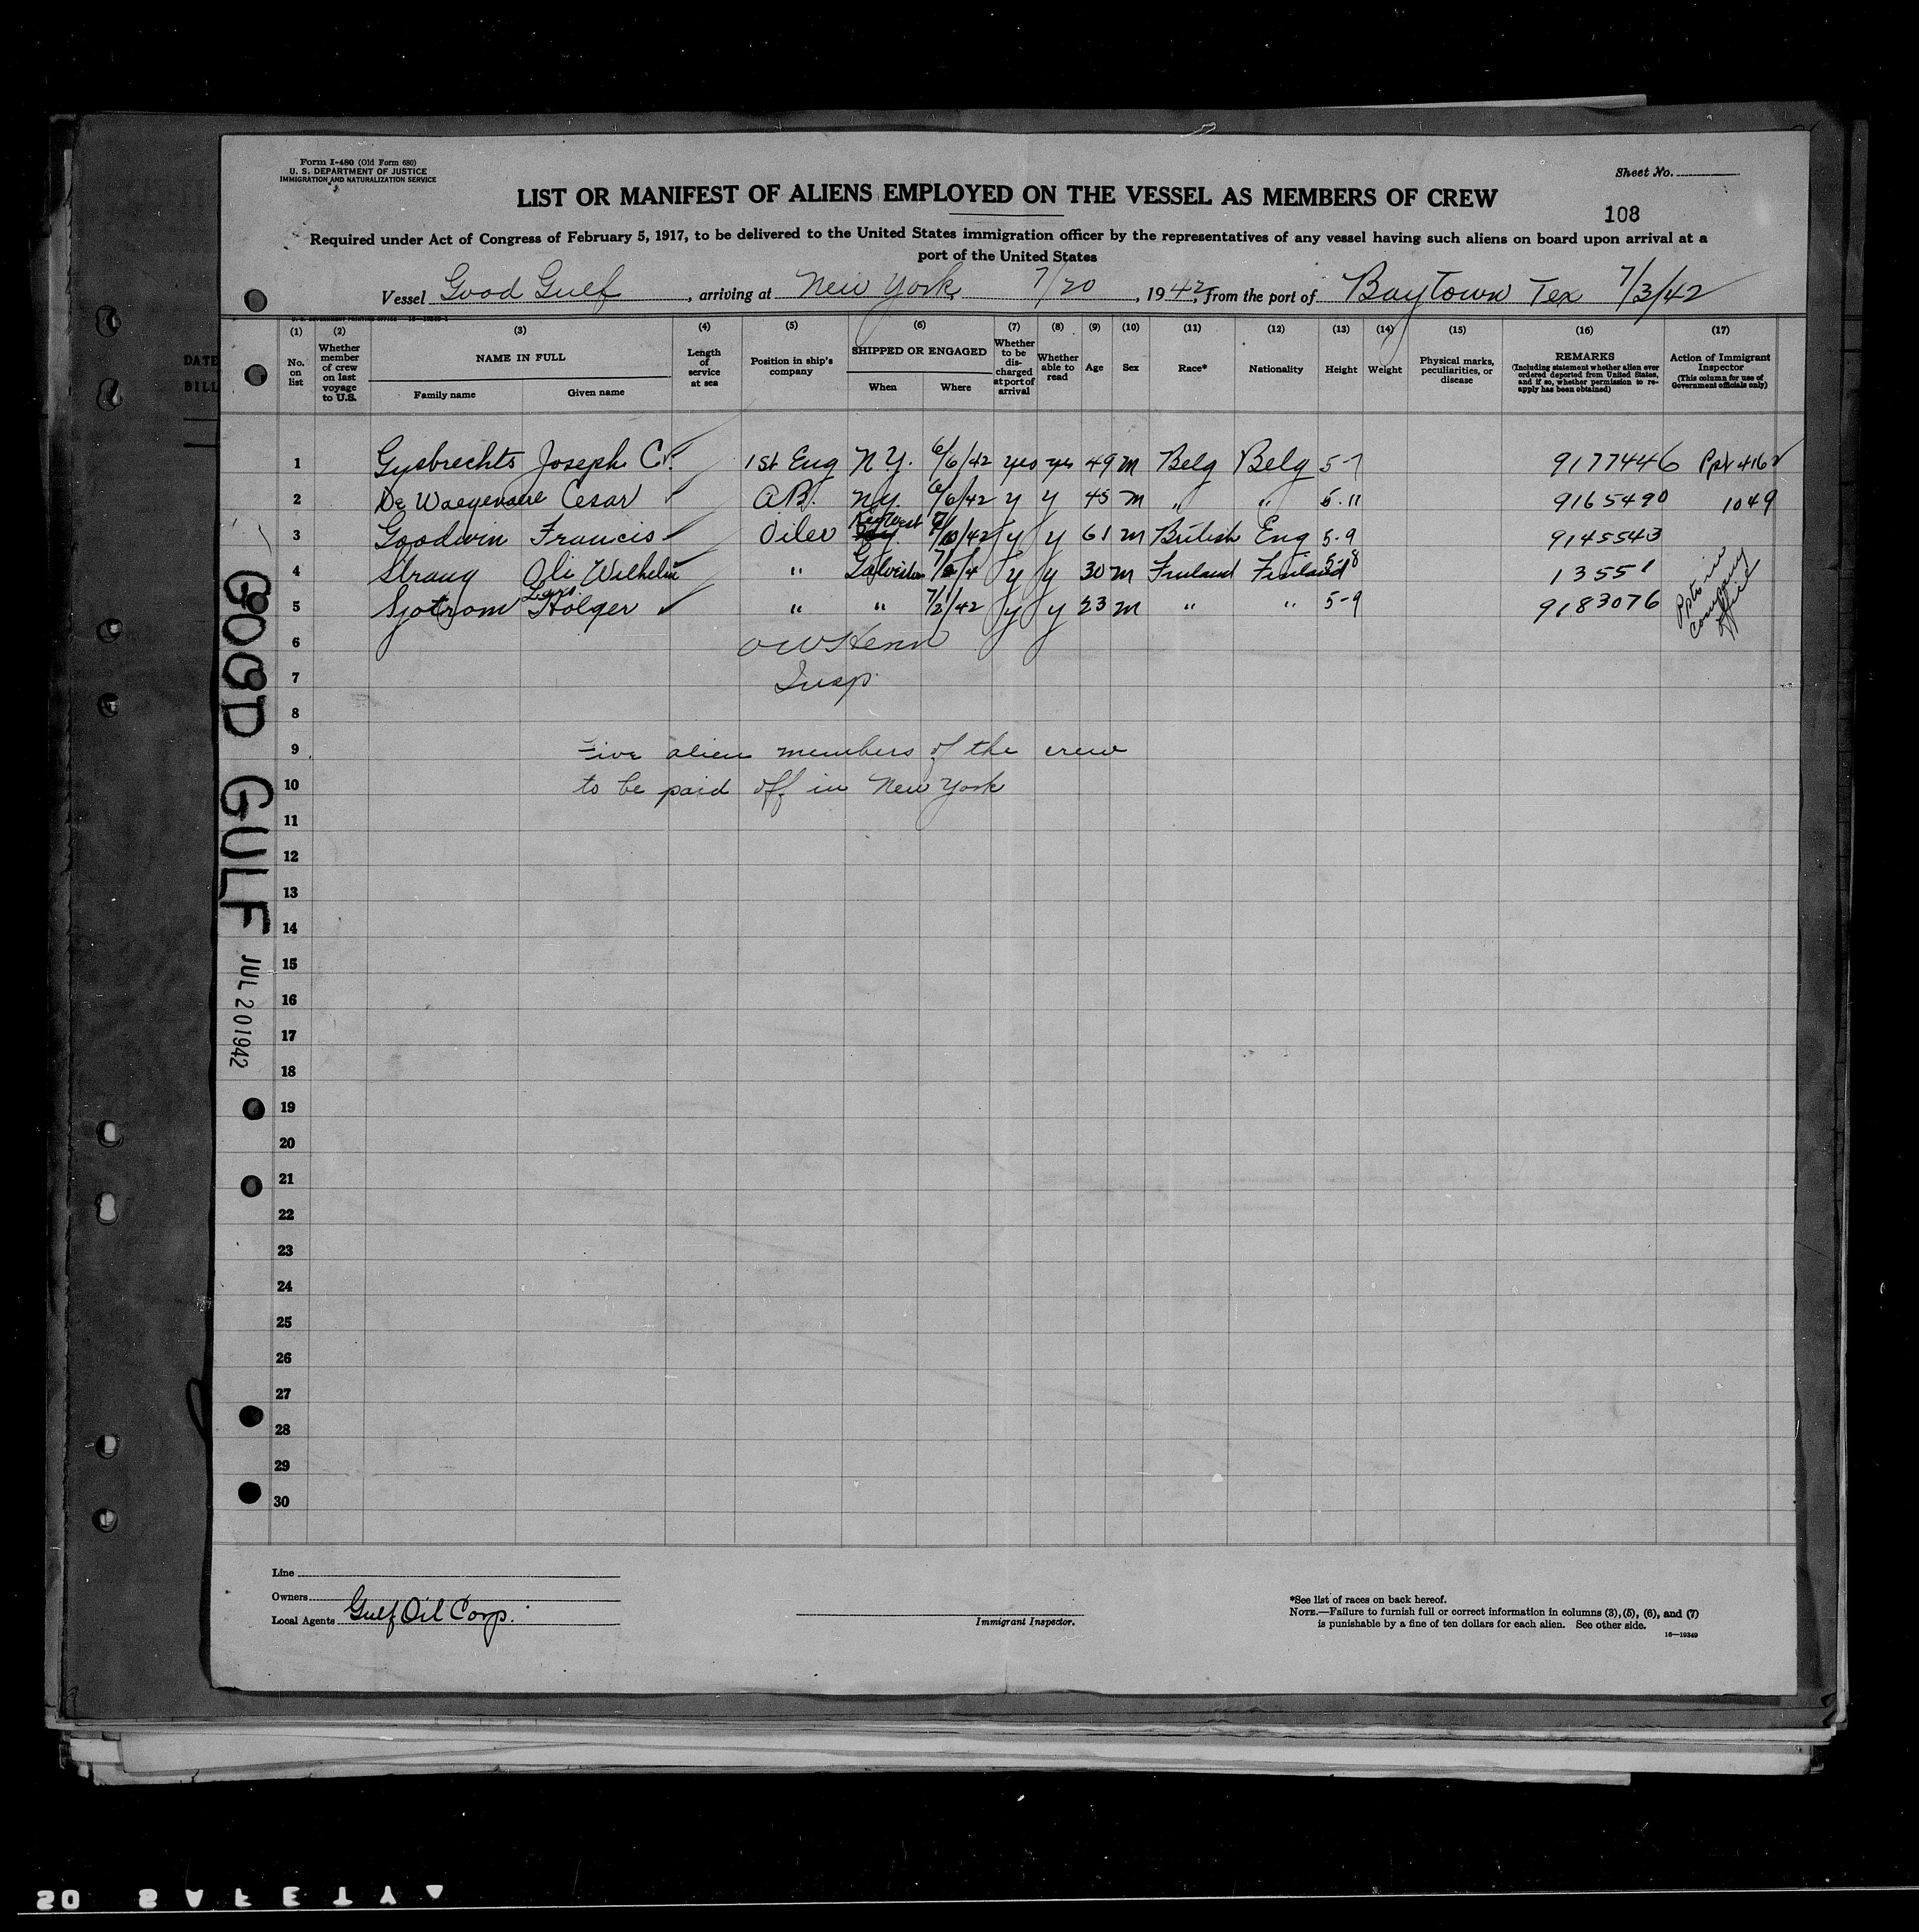 Form I-480 (Old Form 680)
U. S. DEPARTMENT OF JUSTICE
IMMIGRATION AND NATURALIZATION SERVICE
Sheet No.
LIST OR MANIFEST OF ALIENS EMPLOYED ON THE VESSEL AS MEMBERS OF CREW
108
Required under Act of Congress of February 5, 1917, to be delivered to the United States immigration officer by the representatives of any vessel having such aliens on board upon arrival at a
port of the United States
Vessel Good Gulf, arriving at New York 7/20, 1942, from the port of Baytown Tex 7/3/42
(1) (2) (3) (4) (5) (6) (7) (8) (9) (10) (11) (12) (13) (14) (15) (16) (17)
No. on list
Whether member of crew on last voyage to U.S.
NAME IN FULL
Family name Given name
Length of service at sea
Position in ship's company
SHIPPED OR ENGAGED
When Where
Whether to be discharged at port of arrival
Whether able to read
Age
Sex
Race*
Nationality
Height
Weight
Physical marks, peculiarities, or disease
REMARKS
(Including statement whether alien ever ordered deported from United States, and if so, whether permission to re-apply has been obtained)
Action of Immigrant Inspector
(This column for use of Government officials only)
1 Gysbrechts Joseph C. 1st Eng N.Y. 6/6/42 yes yes 49 m Belg Belg 5-7 9177446 Ppt 4162
2 De Waegenaere Cesar A.B. N.Y. 6/6/42 y y 45 m " " 5.11 9165490 1049
3 Goodwin Francis Oiler Key West /42 y y 61 m British Eng 5-9 9145543
4 Oli Wilhelm " Galveston y y 30 m Finland Finland 5-8 13551
5 Sjotrom Lars Holger " " 7/2/42 y y 23 m " " 5-9 9183076
Ppts in company office
6 OWHenn
7 Insp.
8
9 Five alien members of the crew
10 to be paid off in New York
11
12
13
14
15
16
17
18
19
20
21
22
23
24
25
26
27
28
29
30
GOOD GULF JUL 20 1942
DATE
BILL
Line
Owners
Local Agents Gulf Oil Corp.
Immigrant Inspector.
*See list of races on back hereof.
NOTE.—Failure to furnish full or correct information in columns (3), (5), (6), and (7)
is punishable by a fine of ten dollars for each alien. See other side.
16—19349
SAFETY